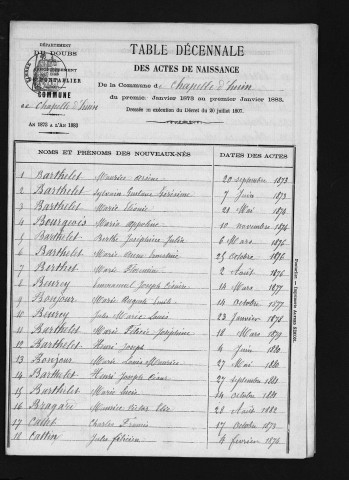 DÉPARTEMENT
DU DOUBS
ARRONDISSEMENT
DE PONTARLIER
COMMUNE
de Chapelle d'Huin
AN 1873 A L'AN 1883
TABLE DÉCENNALE
DES ACTES DE NAISSANCE
De la Commune de Chapelle d'Huin
du premier Janvier 1873 au premier Janvier 1883.
Dressée en exécution du Décret du 20 juillet 1807.
NOMS ET PRÉNOMS DES NOUVEAUX-NÉS DATES DES ACTES
1 Barthelet Maurice 20 septembre 1873
2 Barthelet Sylvain Gustave 7 Juin 1873
3 Barthelet Marie 21 Mai 1874
4 Bourgeois Marie Appoline 10 novembre 1874
5 Barthelet Berthe Joséphine Julie 6 Mars 1876
6 Barthelet Marie 25 Octobre 1876
7 Berthet Marie 2 Août 1876
8 Beurey Emmanuel Joseph 14 Mars 1877
9 Bonjour Marie Auguste 14 Octobre 1877
10 Beurey Jules Marie Louis 23 Janvier 1878
11 Barthelet Marie Félicie Joséphine 18 Mars 1879
12 Barthelet Henri Joseph 4 Juin 1880
13 Bonjour Marie Louis Maurice 27 Mai 1880
14 Barthelet Henri Joseph 27 septembre 1881
15 Barthelet Marie 24 Octobre 1881
16 Bragard Maurice Victor 28 Août 1882
17 Charles 17 Octobre 1873
18 Cattin Jules 4 février 1874